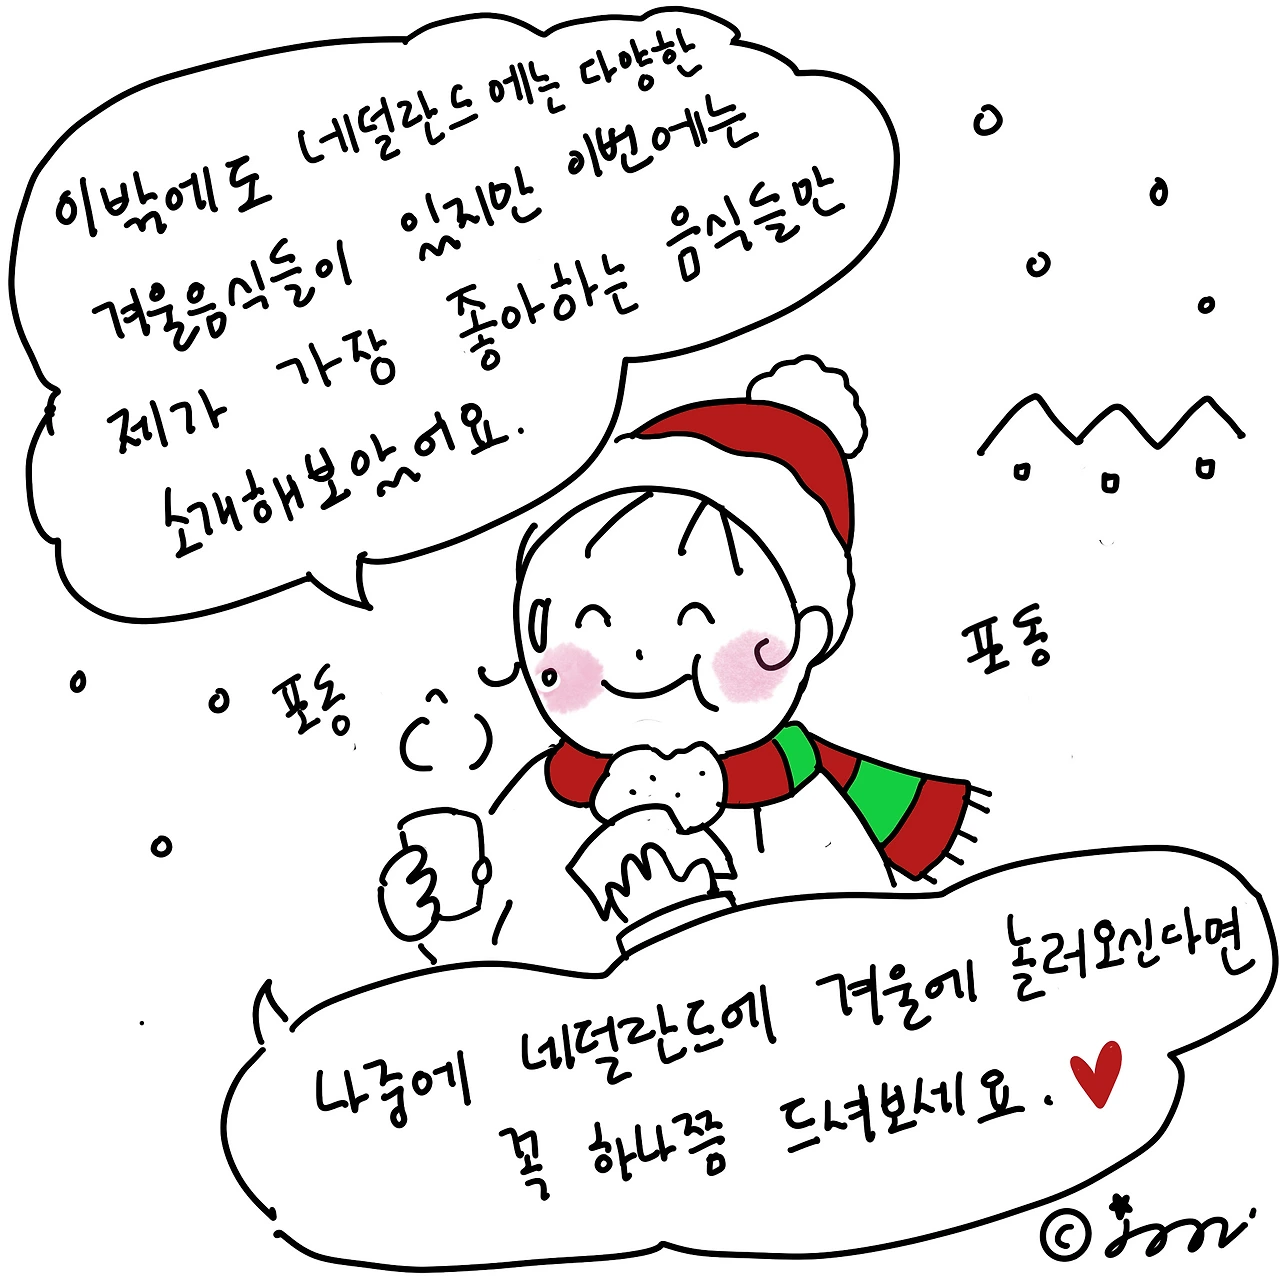 이밖에도 네덜란드에는 다양한
겨울음식들이 있지만 이번에는
제가 가장 좋아하는 음식들만
소개해보았어요.
포동
포동
나중에 네덜란드에 겨울에 놀러오신다면
꼭 하나쯤 드셔보세요.
©